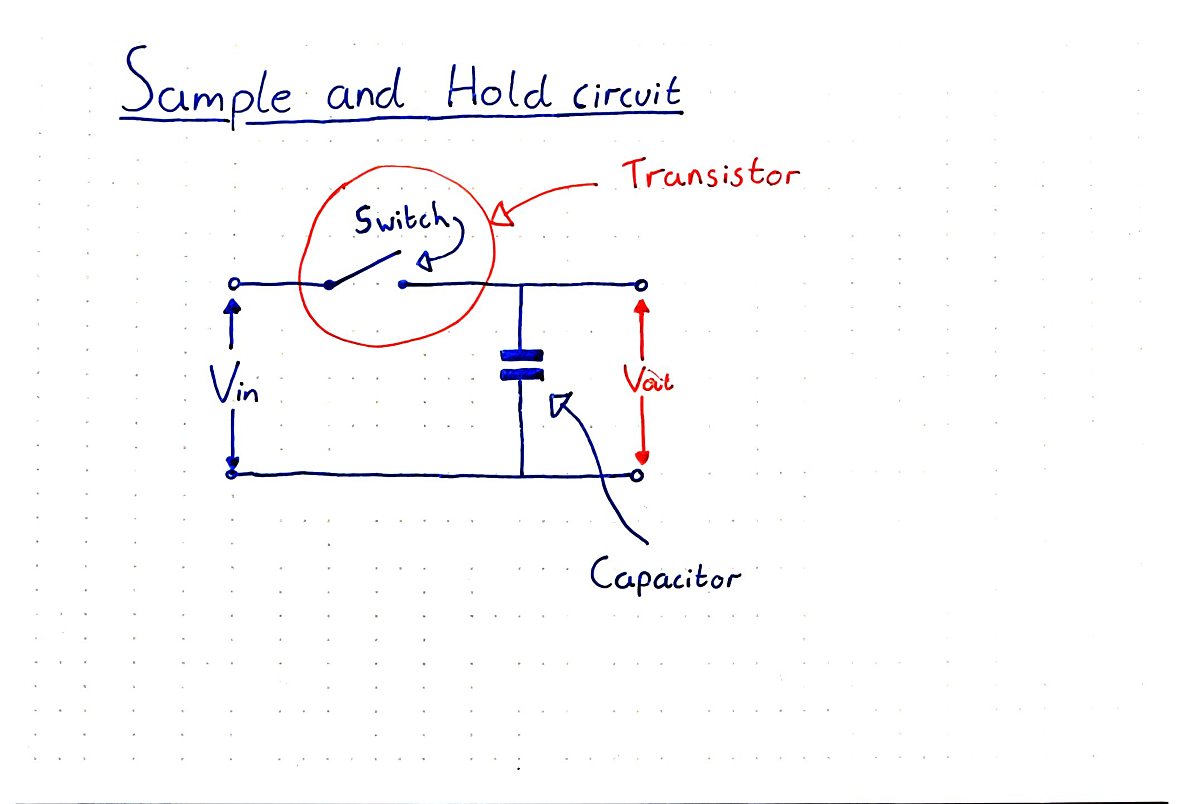 Sample and Hold circuit
Transistor
Switch
Vin
Vout
Capacitor